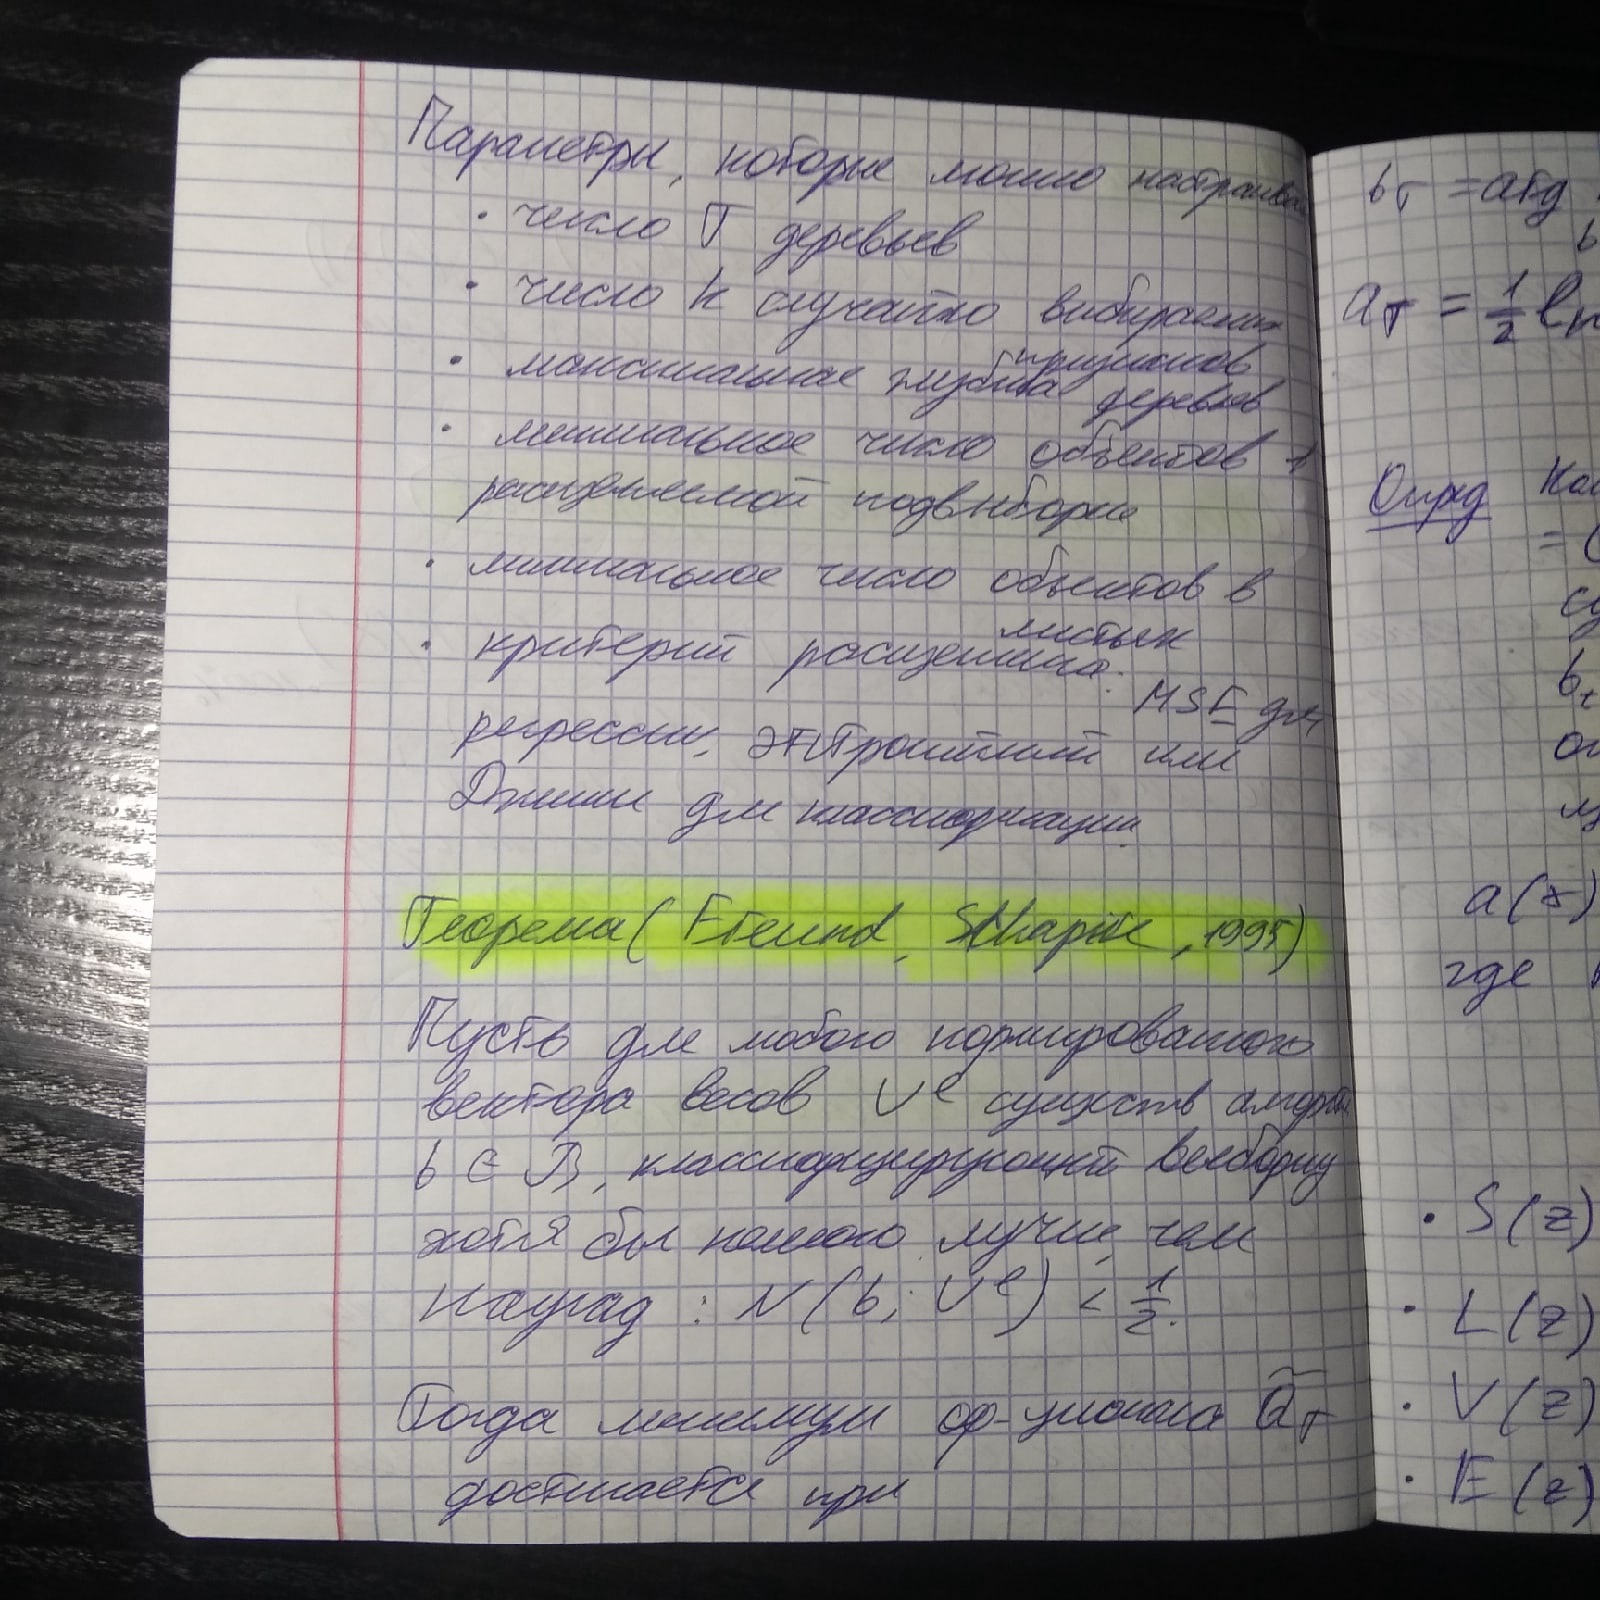 Параметры, которые можно настраивать
· число T деревьев
· число k случайно выбираемых
признаков
· максимальная глубина деревьев
· минимальное число объектов в
расщепляемой подвыборке
· минимальное число объектов в
листьях
· критерий расщепления:
MSE для
регрессии, энтропийный или
Джини для классификации.
Теорема (Freund, Schapire, 1995)
Пусть для любого нормированного
вектора весов U^l существ алгоритм
b ∈ B, классифицирующий выборку
хотя бы немного лучше, чем
наугад : N(b; U^l) < 1/2.
Тогда минимум ф-ционала Q̃_T
достигается при
b_T = arg
b
a_T = 1/2 ln
Опред
= (
b_t
a(x)
где
· S(z)
· L(z)
· V(z)
· E(z)